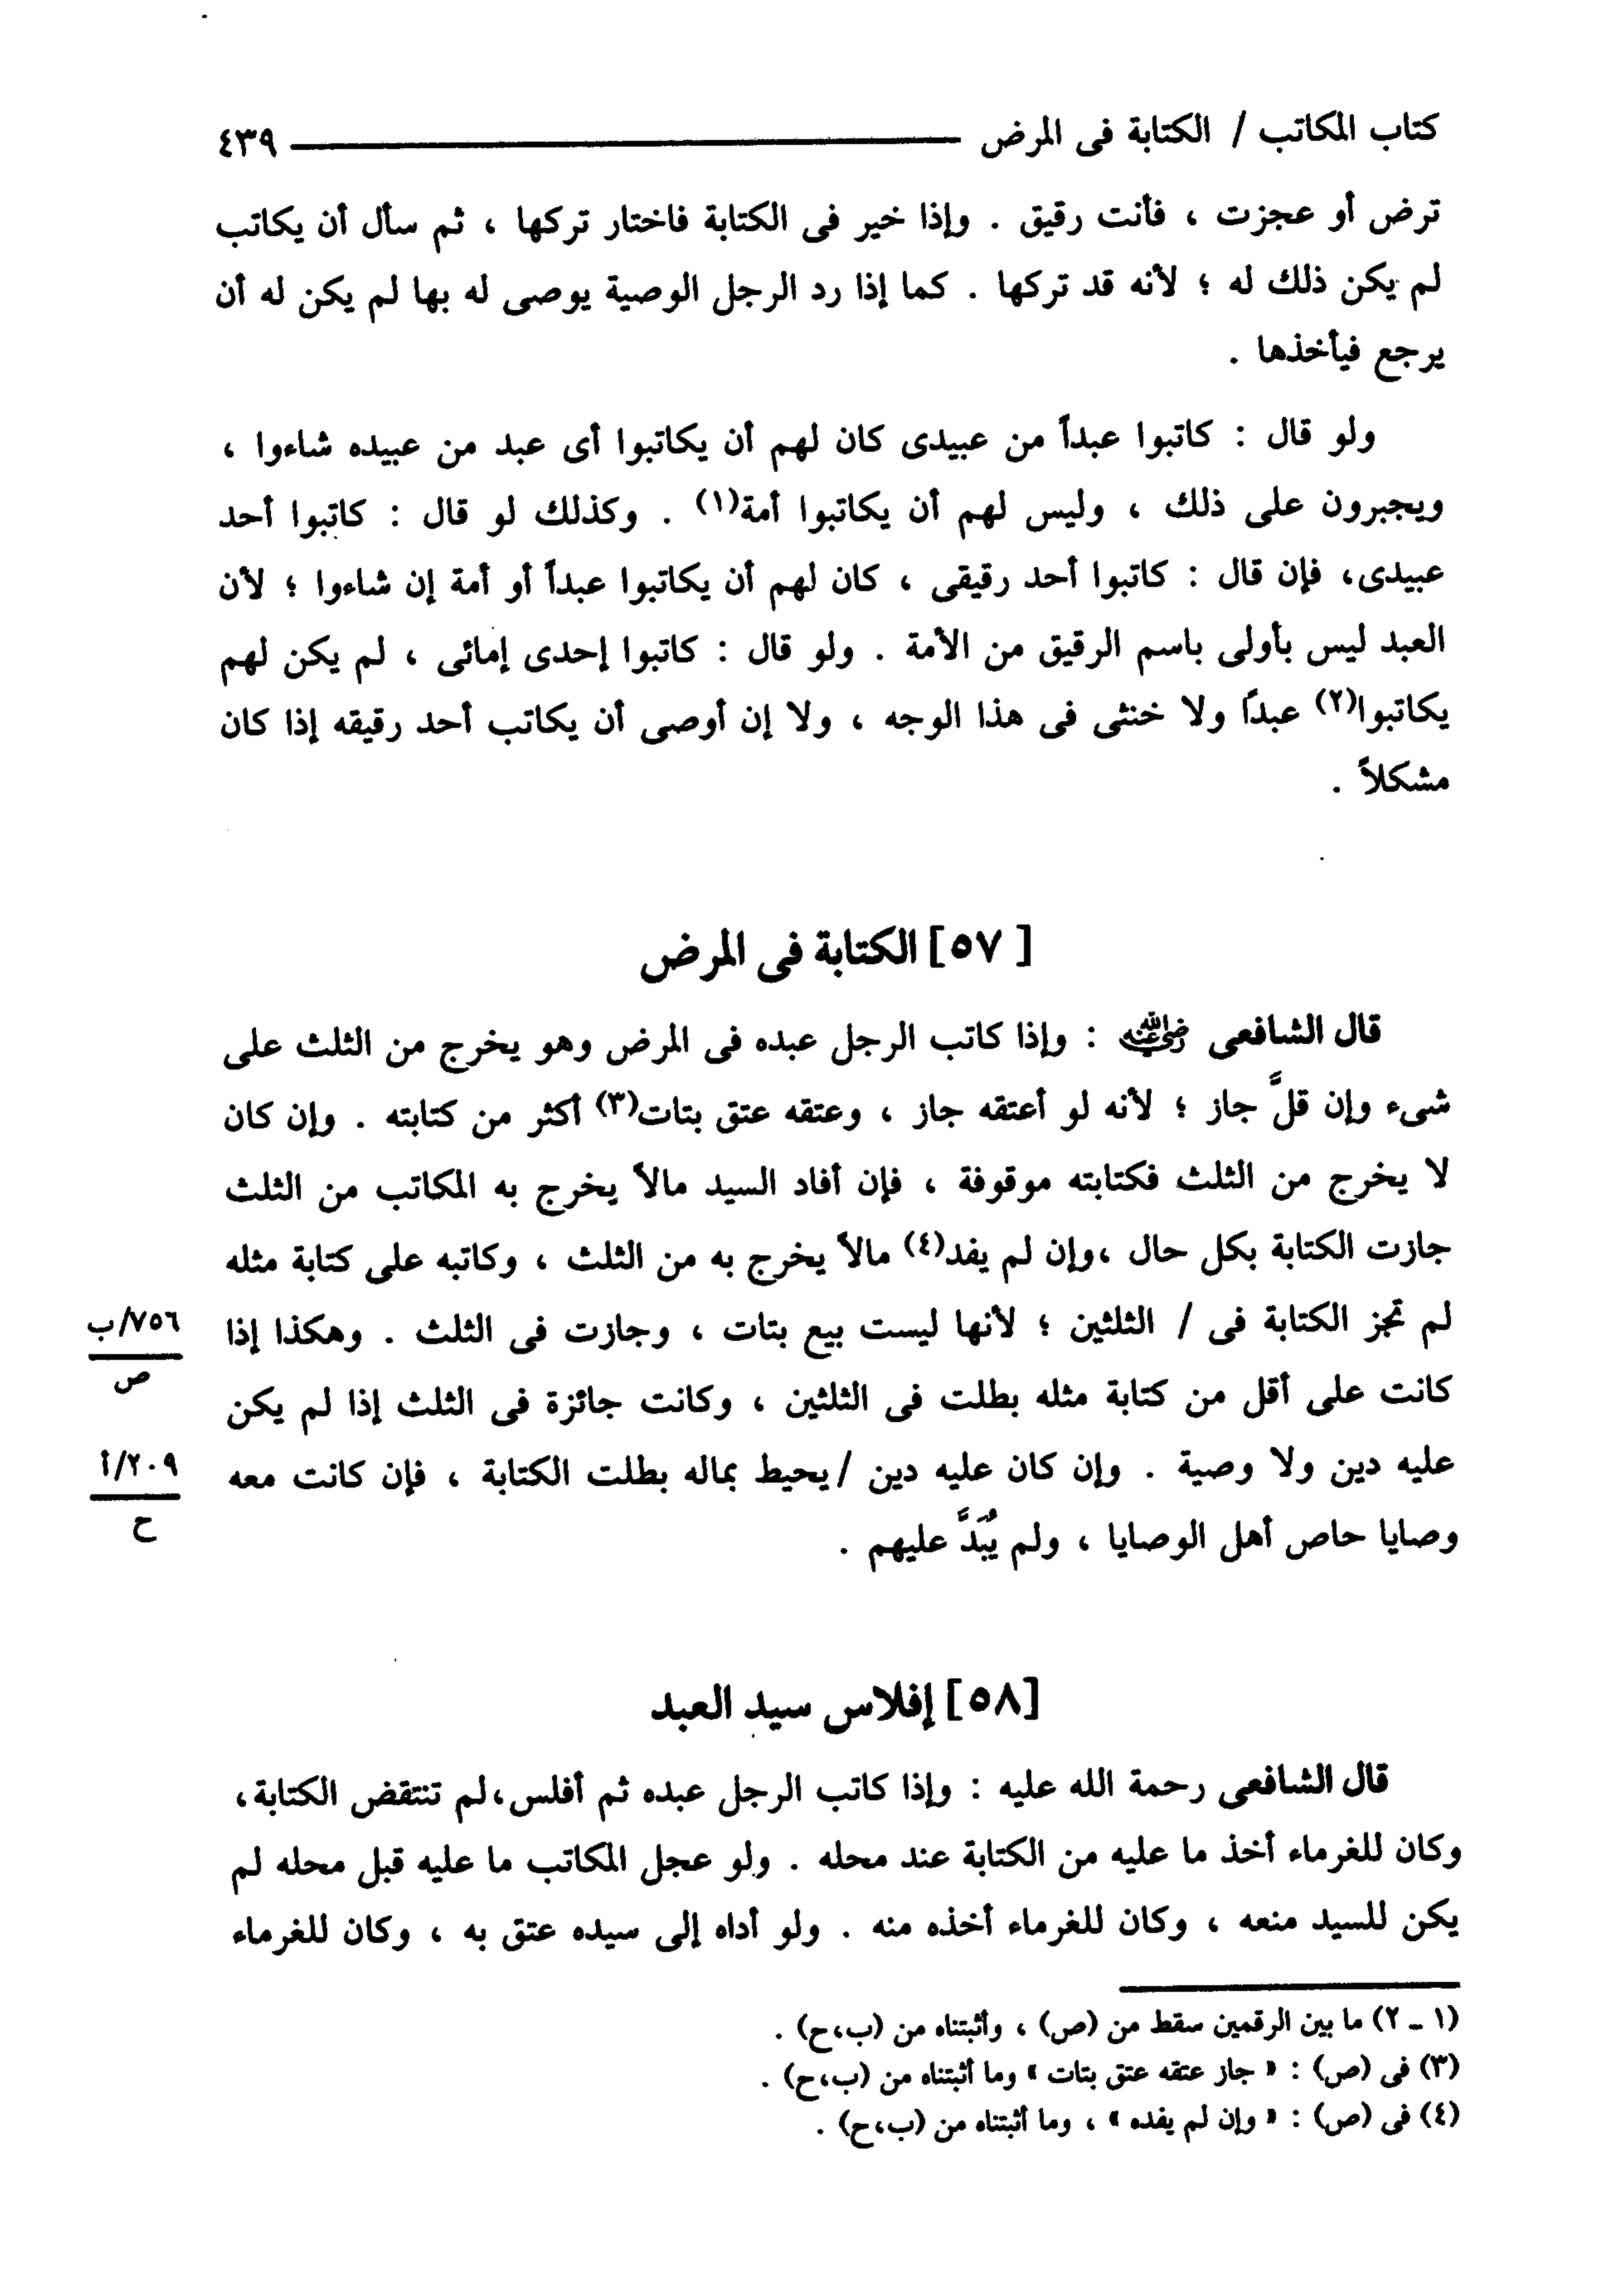 كتاب المكاتب / الكتابة فى المرض ٤٣٩
ترض أو عجزت ، فأنت رقيق . وإذا خير فى الكتابة فاختار تركها ، ثم سأل أن يكاتب
لم يكن ذلك له ؛ لأنه قد تركها . كما إذا رد الرجل الوصية يوصى له بها لم يكن له أن
يرجع فيأخذها .
ولو قال : كاتبوا عبداً من عبيدى كان لهم أن يكاتبوا أى عبد من عبيده شاءوا ،
ويجبرون على ذلك ، وليس لهم أن يكاتبوا أمة(١) . وكذلك لو قال : كاتبوا أحد
عبيدى، فإن قال : كاتبوا أحد رقيقى ، كان لهم أن يكاتبوا عبداً أو أمة إن شاءوا ؛ لأن
العبد ليس بأولى باسم الرقيق من الأمة . ولو قال : كاتبوا إحدى إمائى ، لم يكن لهم
يكاتبوا(٢) عبداً ولا خنثى فى هذا الوجه ، ولا إن أوصى أن يكاتب أحد رقيقه إذا كان
مشكلاً .
[ ٥٧] الكتابة فى المرض
قال الشافعى رضي الله عنه : وإذا كاتب الرجل عبده فى المرض وهو يخرج من الثلث على
شىء وإن قلَّ جاز ؛ لأنه لو أعتقه جاز ، وعتقه عتق بتات(٣) أكثر من كتابته . وإن كان
لا يخرج من الثلث فكتابته موقوفة ، فإن أفاد السيد مالاً يخرج به المكاتب من الثلث
جازت الكتابة بكل حال ،وإن لم يفد(٤) مالاً يخرج به من الثلث ، وكاتبه على كتابة مثله
لم تجز الكتابة فى / الثلثين ؛ لأنها ليست بيع بتات ، وجازت فى الثلث . وهكذا إذا
٧٥٦/ب
ص
كانت على أقل من كتابة مثله بطلت فى الثلثين ، وكانت جائزة فى الثلث إذا لم يكن
عليه دين ولا وصية . وإن كان عليه دين /يحيط بماله بطلت الكتابة ، فإن كانت معه
٢٠٩/أ
ح
وصايا حاص أهل الوصايا ، ولم يُبَدَّ عليهم .
[٥٨] إفلاس سيد العبد
قال الشافعى رحمة الله عليه : وإذا كاتب الرجل عبده ثم أفلس،لم تنتقض الكتابة،
وكان للغرماء أخذ ما عليه من الكتابة عند محله . ولو عجل المكاتب ما عليه قبل محله لم
يكن للسيد منعه ، وكان للغرماء أخذه منه . ولو أداه إلى سيده عتق به ، وكان للغرماء
(١ ــ ٢) ما بين الرقمين سقط من (ص) ، وأثبتناه من (ب،ح) .
(٣) فى (ص) : « جاز عتقه عتق بتات » وما أثبتناه من (ب،ح) .
(٤) فى (ص) : « وإن لم يفده » ، وما أثبتناه من (ب،ح) .